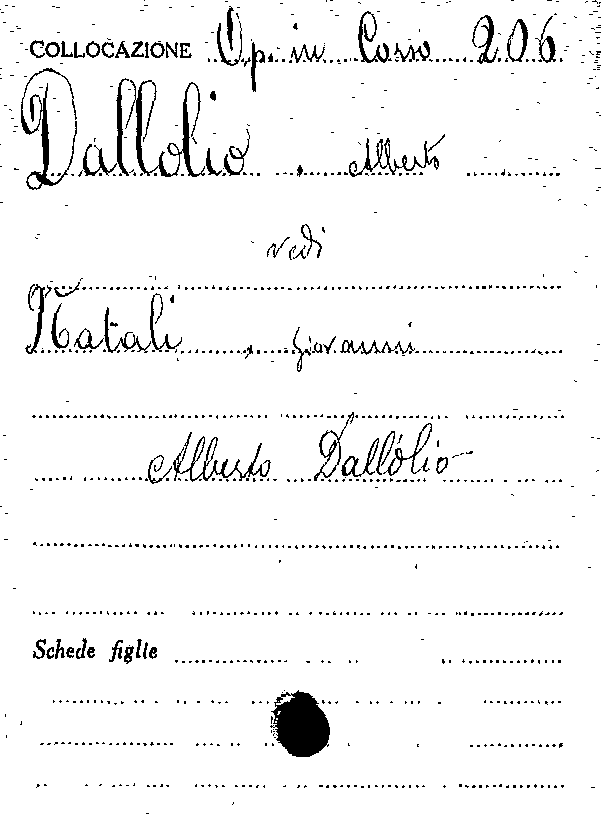 COLLOCAZIONE Op. in Corso 206
Dallolio, Alberto
vedi
Natali, Giovanni
Alberto Dallolio
Schede figlie